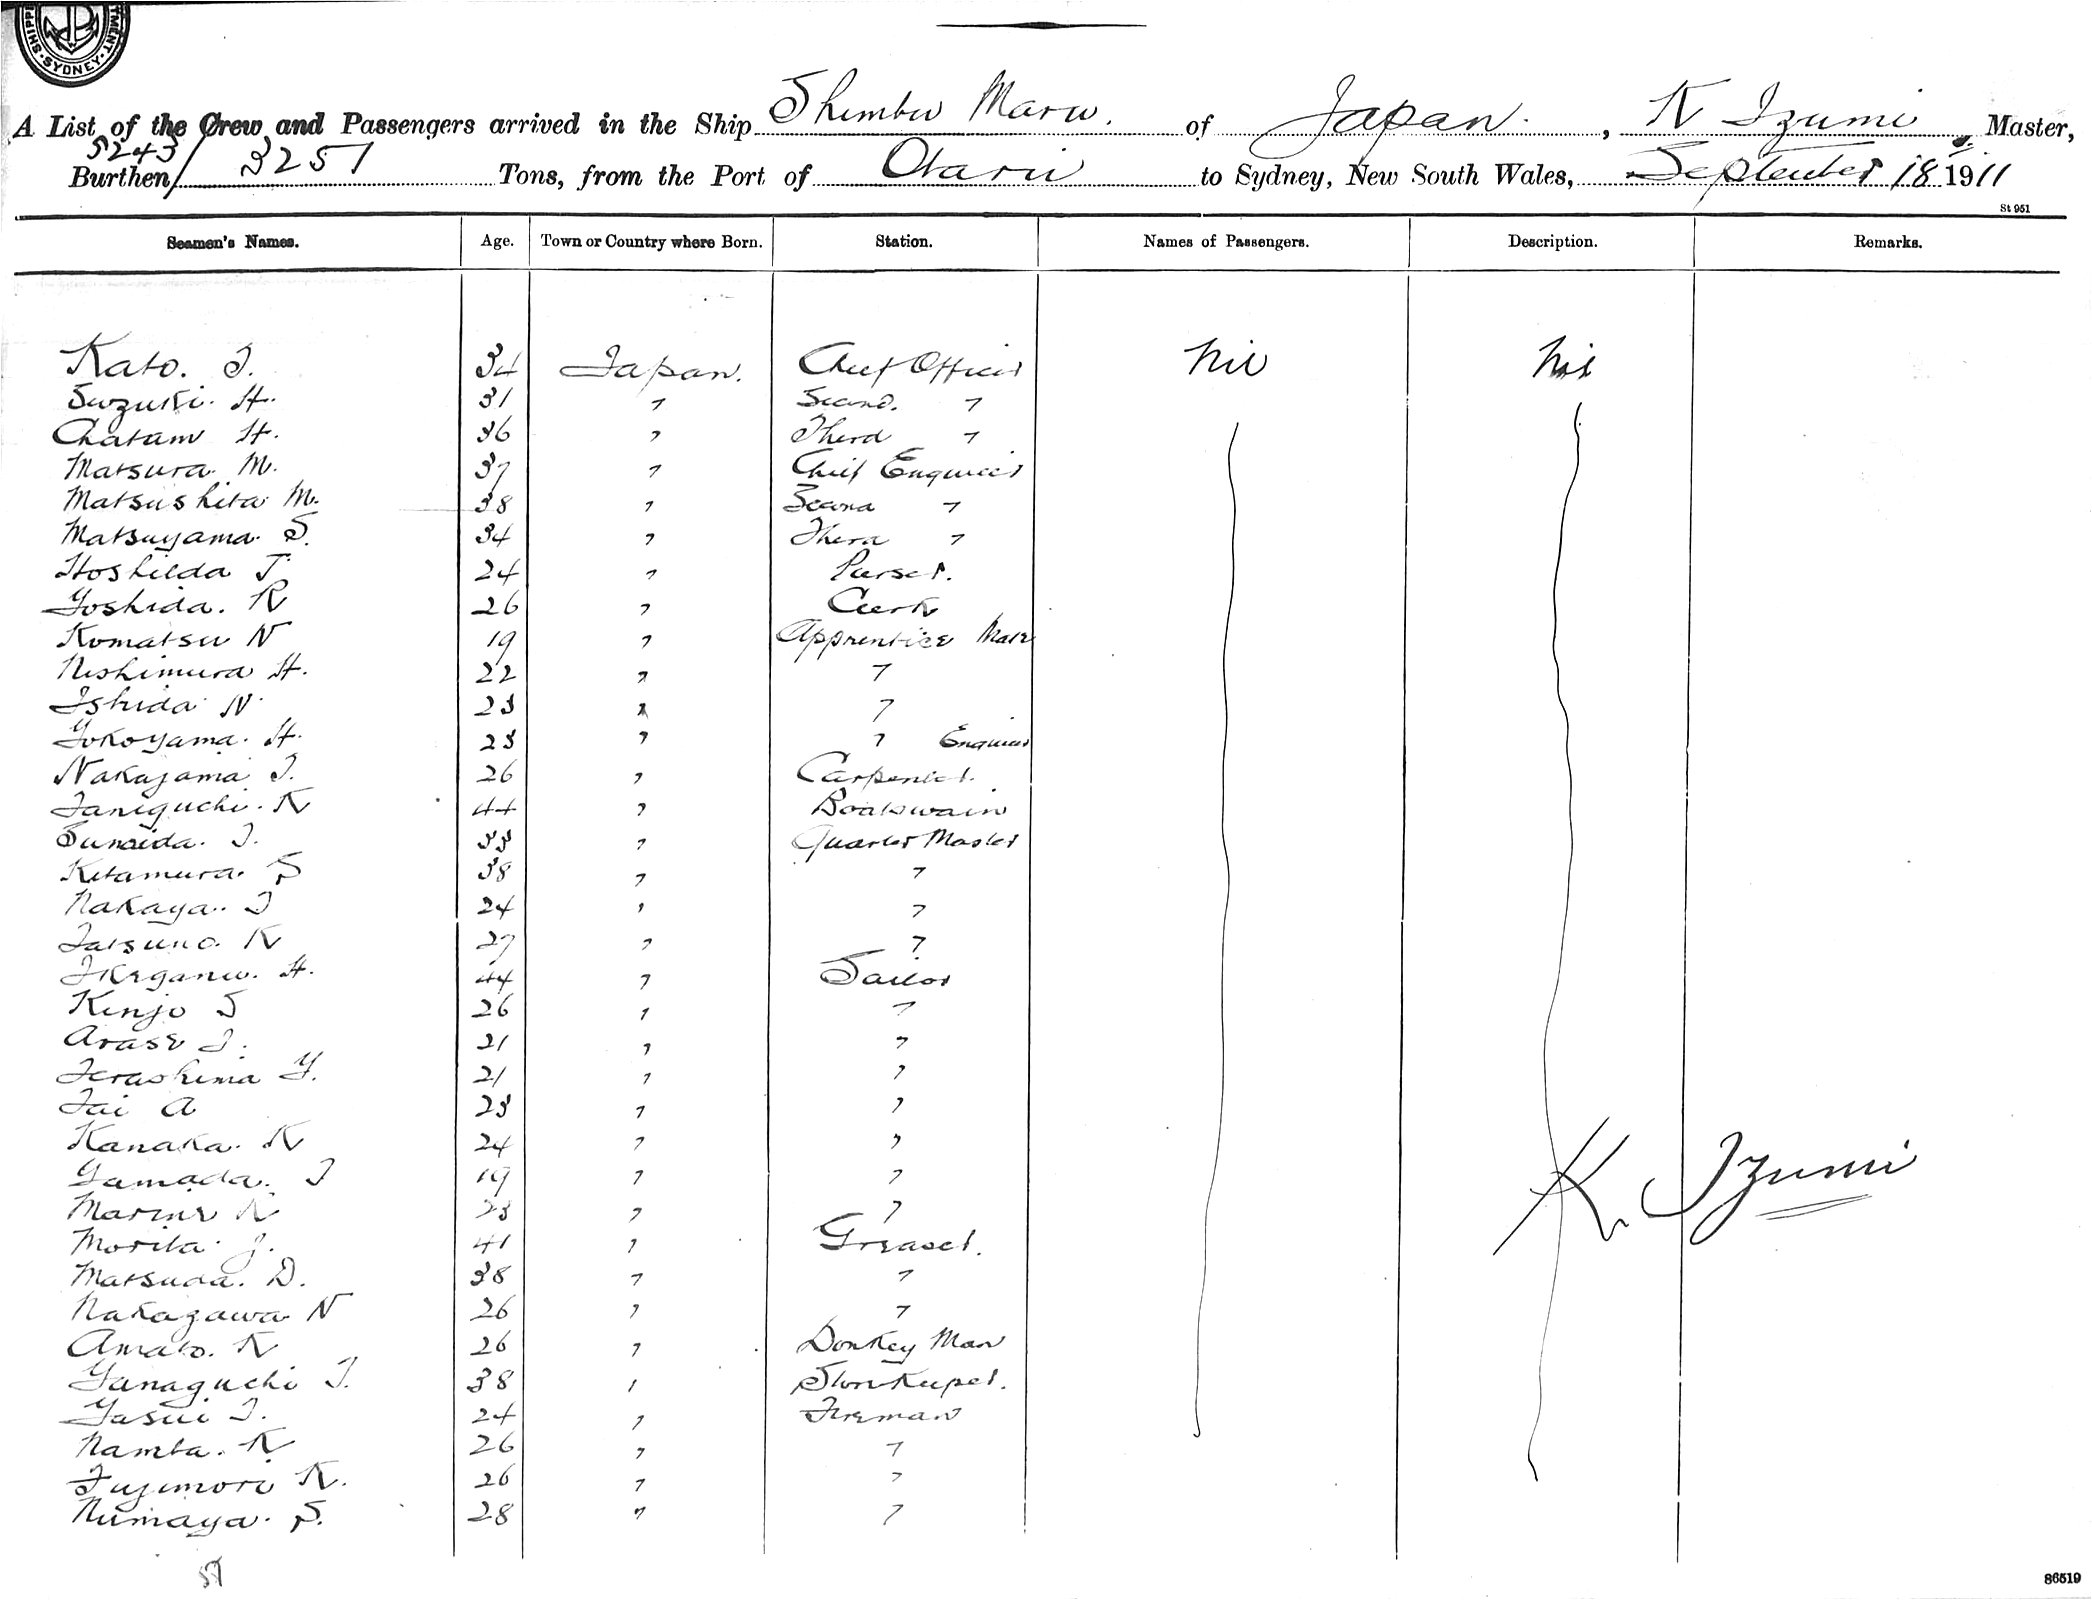 SHIPPI TMENT SYDNEY
A List of the Crew and Passengers arrived in the Ship Shimbu Maru. of Japan. , K Izumi , Master,
5243/
Burthen 3251 Tons, from the Port of Otaru to Sydney, New South Wales, September 18 1911
St 951
Seamen's Names. Age. Town or Country where Born. Station. Names of Passengers. Description. Remarks.
Kato. T. 34 Japan. Chief Officer Nil Nil
Suzuki. H. 31 " Second. "
Chatani H. 36 " Third "
Matsura M. 37 " Chief Engineer
Matsushita M. 38 " Second "
Matsuyama. S. 34 " Third "
Hoshilda T. 24 " Purser.
Yoshida. R 26 " Clerk
Komatsu N 19 " Apprentice Mate
Nishimura H. 22 " "
Ishida N. 23 " "
Yokoyama. H. 23 " " Engineer
Nakayama T. 26 " Carpenter.
Taniguchi. K 44 " Boatswain
Sumida. T. 33 " Quarter Master
Kitamura. S 38 " "
Nakaya. T 24 " "
Tatsuno. K 27 " "
H. 44 " Sailor
Kinjo S 26 " "
Arase T. 21 " "
Terashima Y. 21 " "
Tai A 23 " "
Kanaka. K 24 " "
Yamada. T 19 " "
K. Izumi
K 23 " "
Morita. J. 41 " Greaser.
Matsuda. D. 38 " "
Nakagawa N 26 " "
Amato. K 26 " Donkey Man
Yanaguchi T. 38 " Storekeeper.
Yasui T. 24 " Fireman
Namba. K 26 " "
Fujimori K. 26 " "
Numaya. S. 28 " "
86519